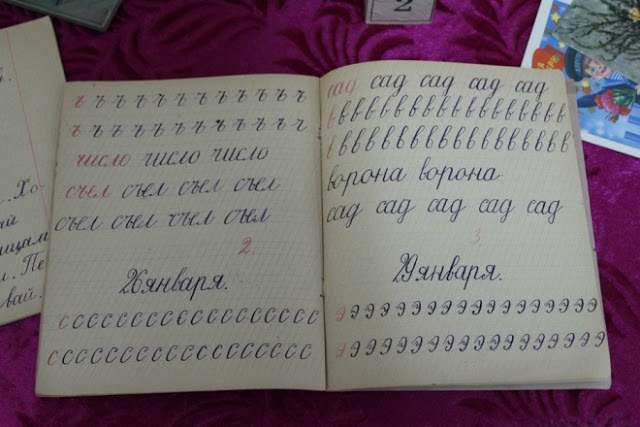 2
ъ ъ ъ ъ ъ ъ ъ ъ ъ ъ ъ ъ
ъ ъ ъ ъ ъ ъ ъ ъ ъ ъ ъ ъ
число число число
съел съел съел съел
съел съел съел съел
2.
28 января.
с с с с с с с с с с с с с с с с с с
с с с с с с с с с с с с с с с с с с
сад сад сад сад сад
в в в в в в в в в в в в в в в в в
в в в в в в в в в в в в в в в в в
ворона ворона
сад сад сад сад сад
3
29 января.
э э э э э э э э э э э э э э э э э э
э э э э э э э э э э э э э э э э э э
. Хо-
ай
ицам
. Пе
вай.